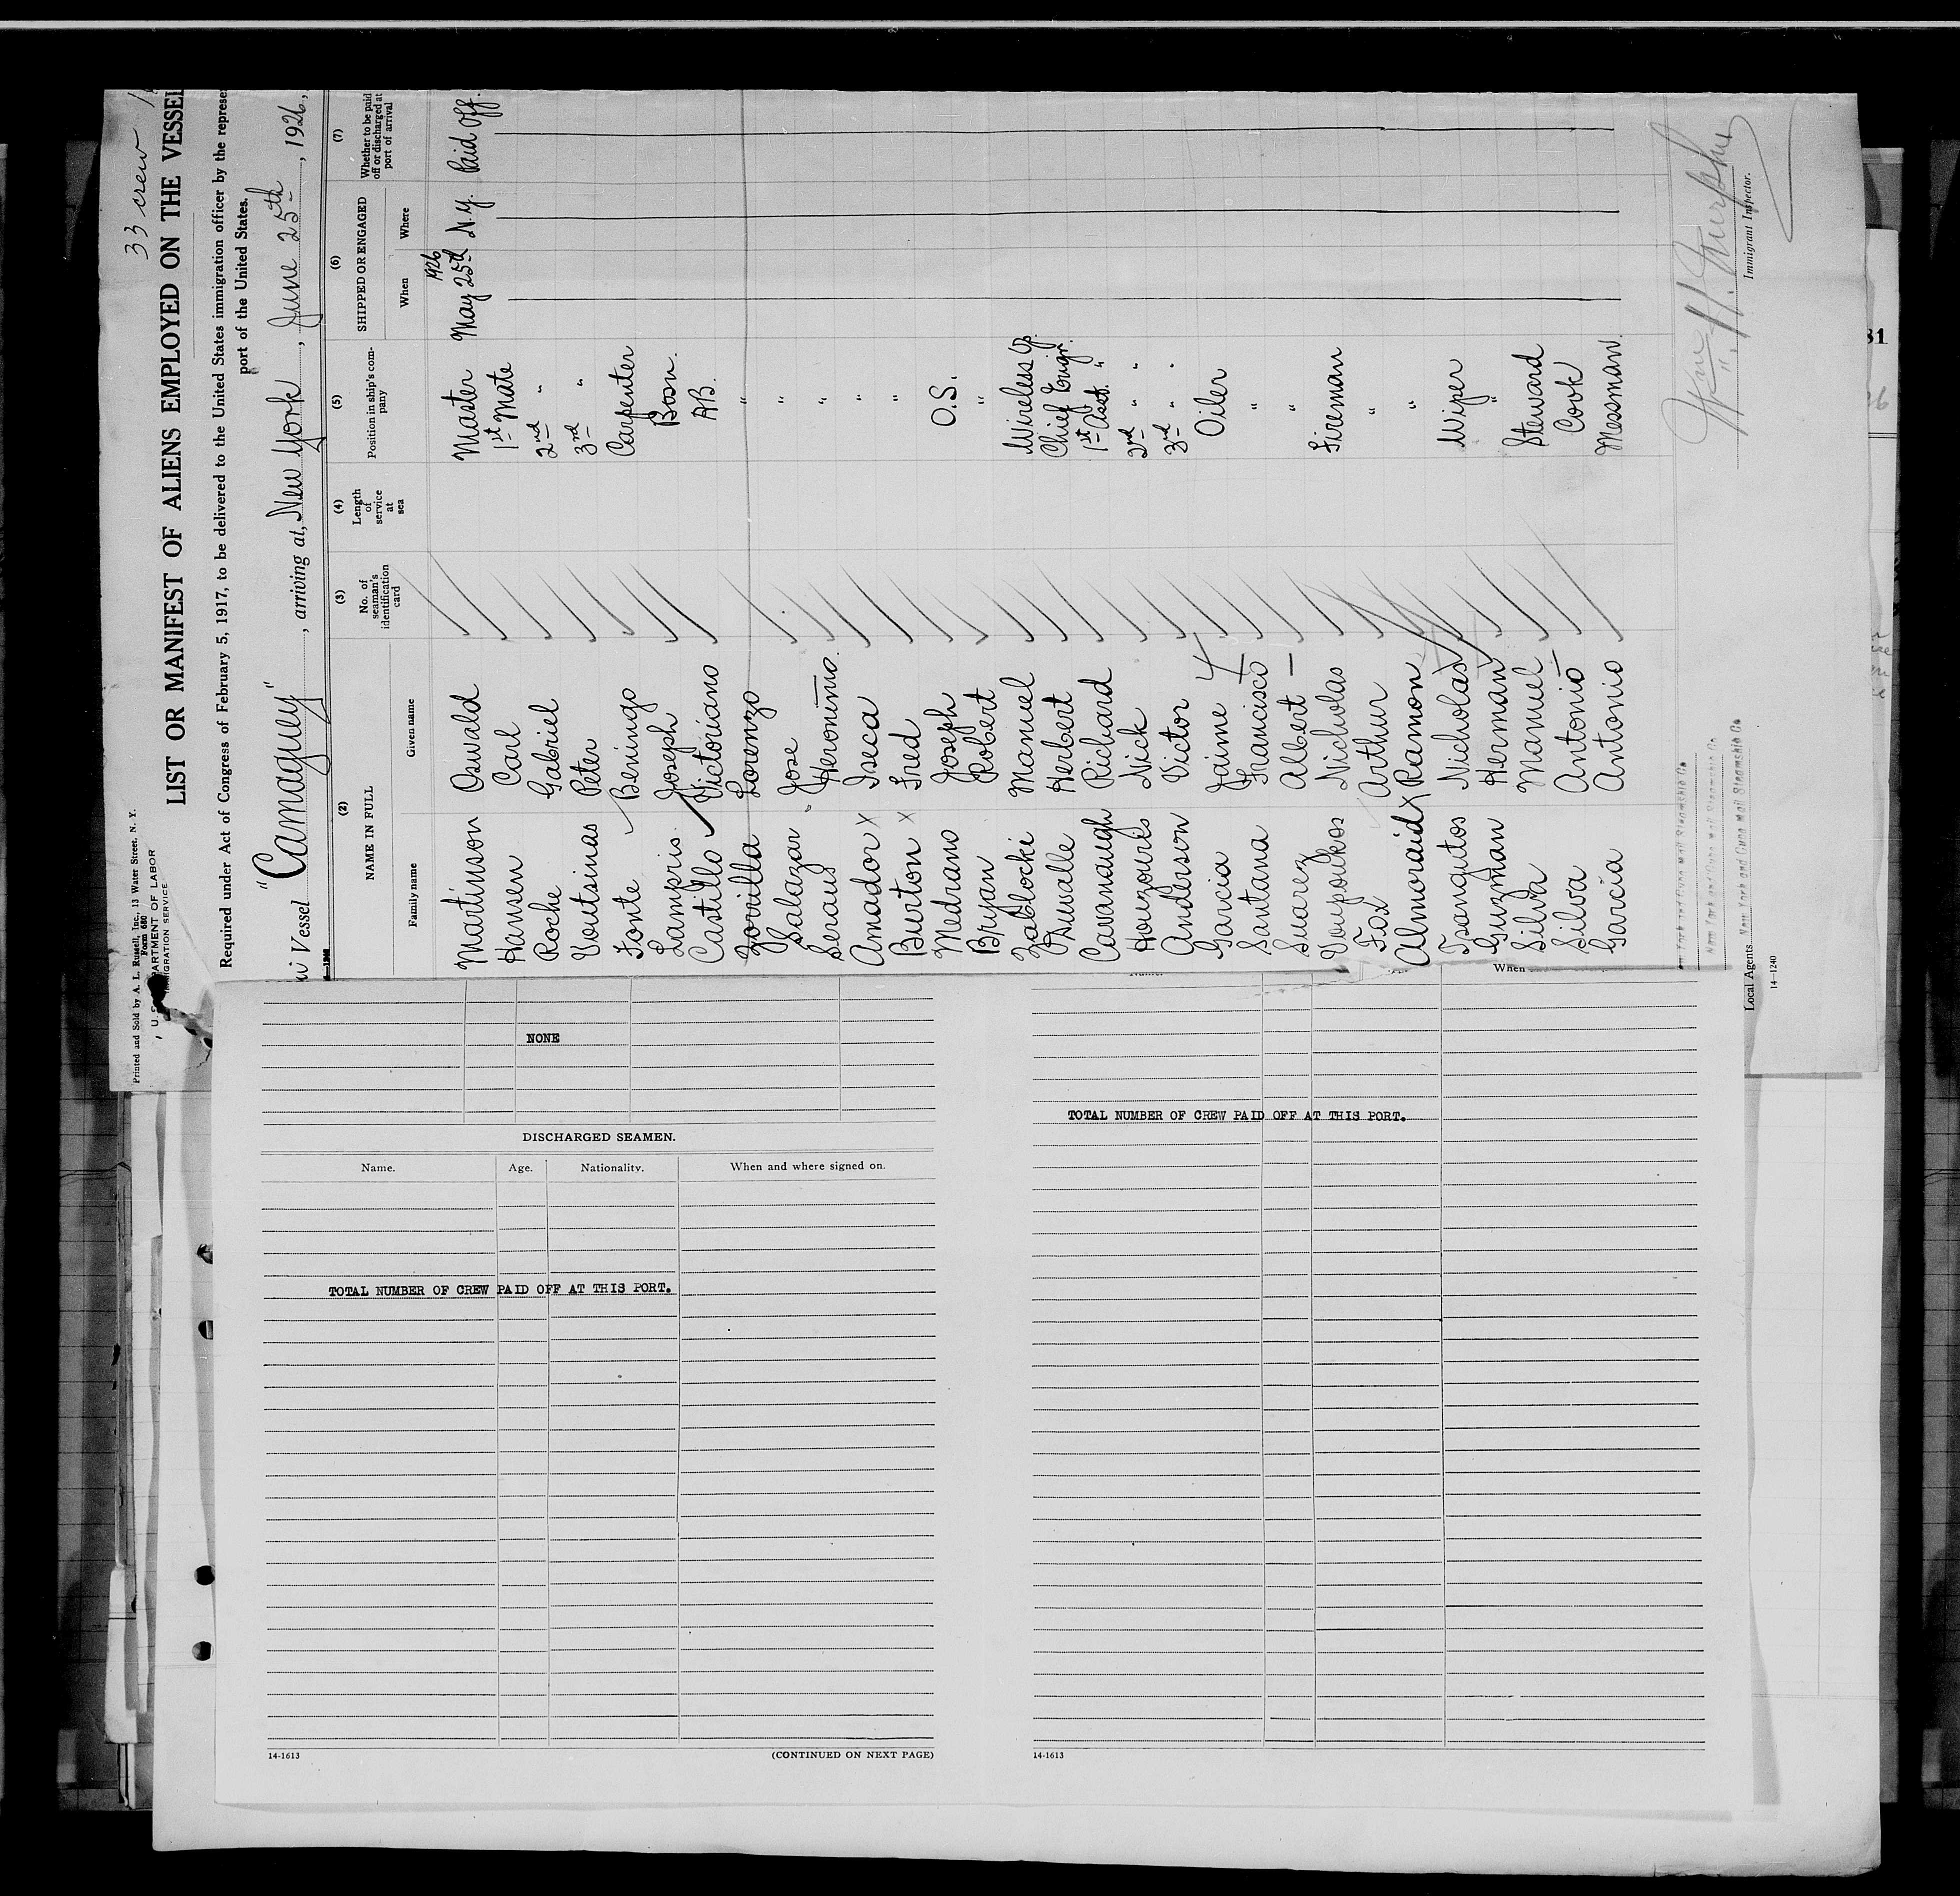 33 crew
Printed and Sold by A. L. Russell, Inc., 13 Water Street, N. Y.
Form 680
U. S. DEPARTMENT OF LABOR
IMMIGRATION SERVICE
LIST OR MANIFEST OF ALIENS EMPLOYED ON THE VESSEL
Required under Act of Congress of February 5, 1917, to be delivered to the United States immigration officer by the represe
port of the United States.
Vessel "Camaguey", arriving at, New York, June 25th, 1926,
(2) (3) (4) (5) (6) (7)
NAME IN FULL No. of seaman's identification card Length of service at sea Position in ship's company SHIPPED OR ENGAGED Whether to be paid off or discharged at port of arrival
Family name Given name When Where
1926
Martinson Oswald Master May 25th N.Y. Paid Off.
Hansen Carl 1st Mate
Roche Gabriel 2nd "
Voutsinas Peter 3rd "
Fonte Beningo Carpenter
Lampris Joseph Bosn.
Castillo Victoriano AB.
Zorrilla Lorenzo "
Salazar Jose "
Seraus Heronimo "
Amador x Iseca "
Burton x Fred "
Medrano Joseph O.S.
Bryan Robert "
Zablocki Manuel Wireless Op.
Duvalle Herbert Chief Engr.
Cavanaugh Richard 1st Asst. "
Houzoures Nick 2nd " "
Anderson Victor 3rd " "
Garcia Jaime Oiler
Santana Francisco "
Suarez Albert "
Voupoukos Nicholas Fireman
Fox Arthur "
Almoraid x Ramon "
Tsangutos Nicholas Wiper
Guzman Herman "
Silva Manuel Steward
Silva Antonio Cook
Garcia Antonio Messman.
Wm. H. Murphy
Immigrant Inspector.
New York and Cuba Mail Steamship Co
New York and Cuba Mail Steamship Co
Local Agents New York and Cuba Mail Steamship Co
14—1240
31
NONE
DISCHARGED SEAMEN.
Name. Age. Nationality. When and where signed on.
TOTAL NUMBER OF CREW PAID OFF AT THIS PORT.
14-1613 (CONTINUED ON NEXT PAGE)
When
TOTAL NUMBER OF CREW PAID OFF AT THIS PORT.
14-1613